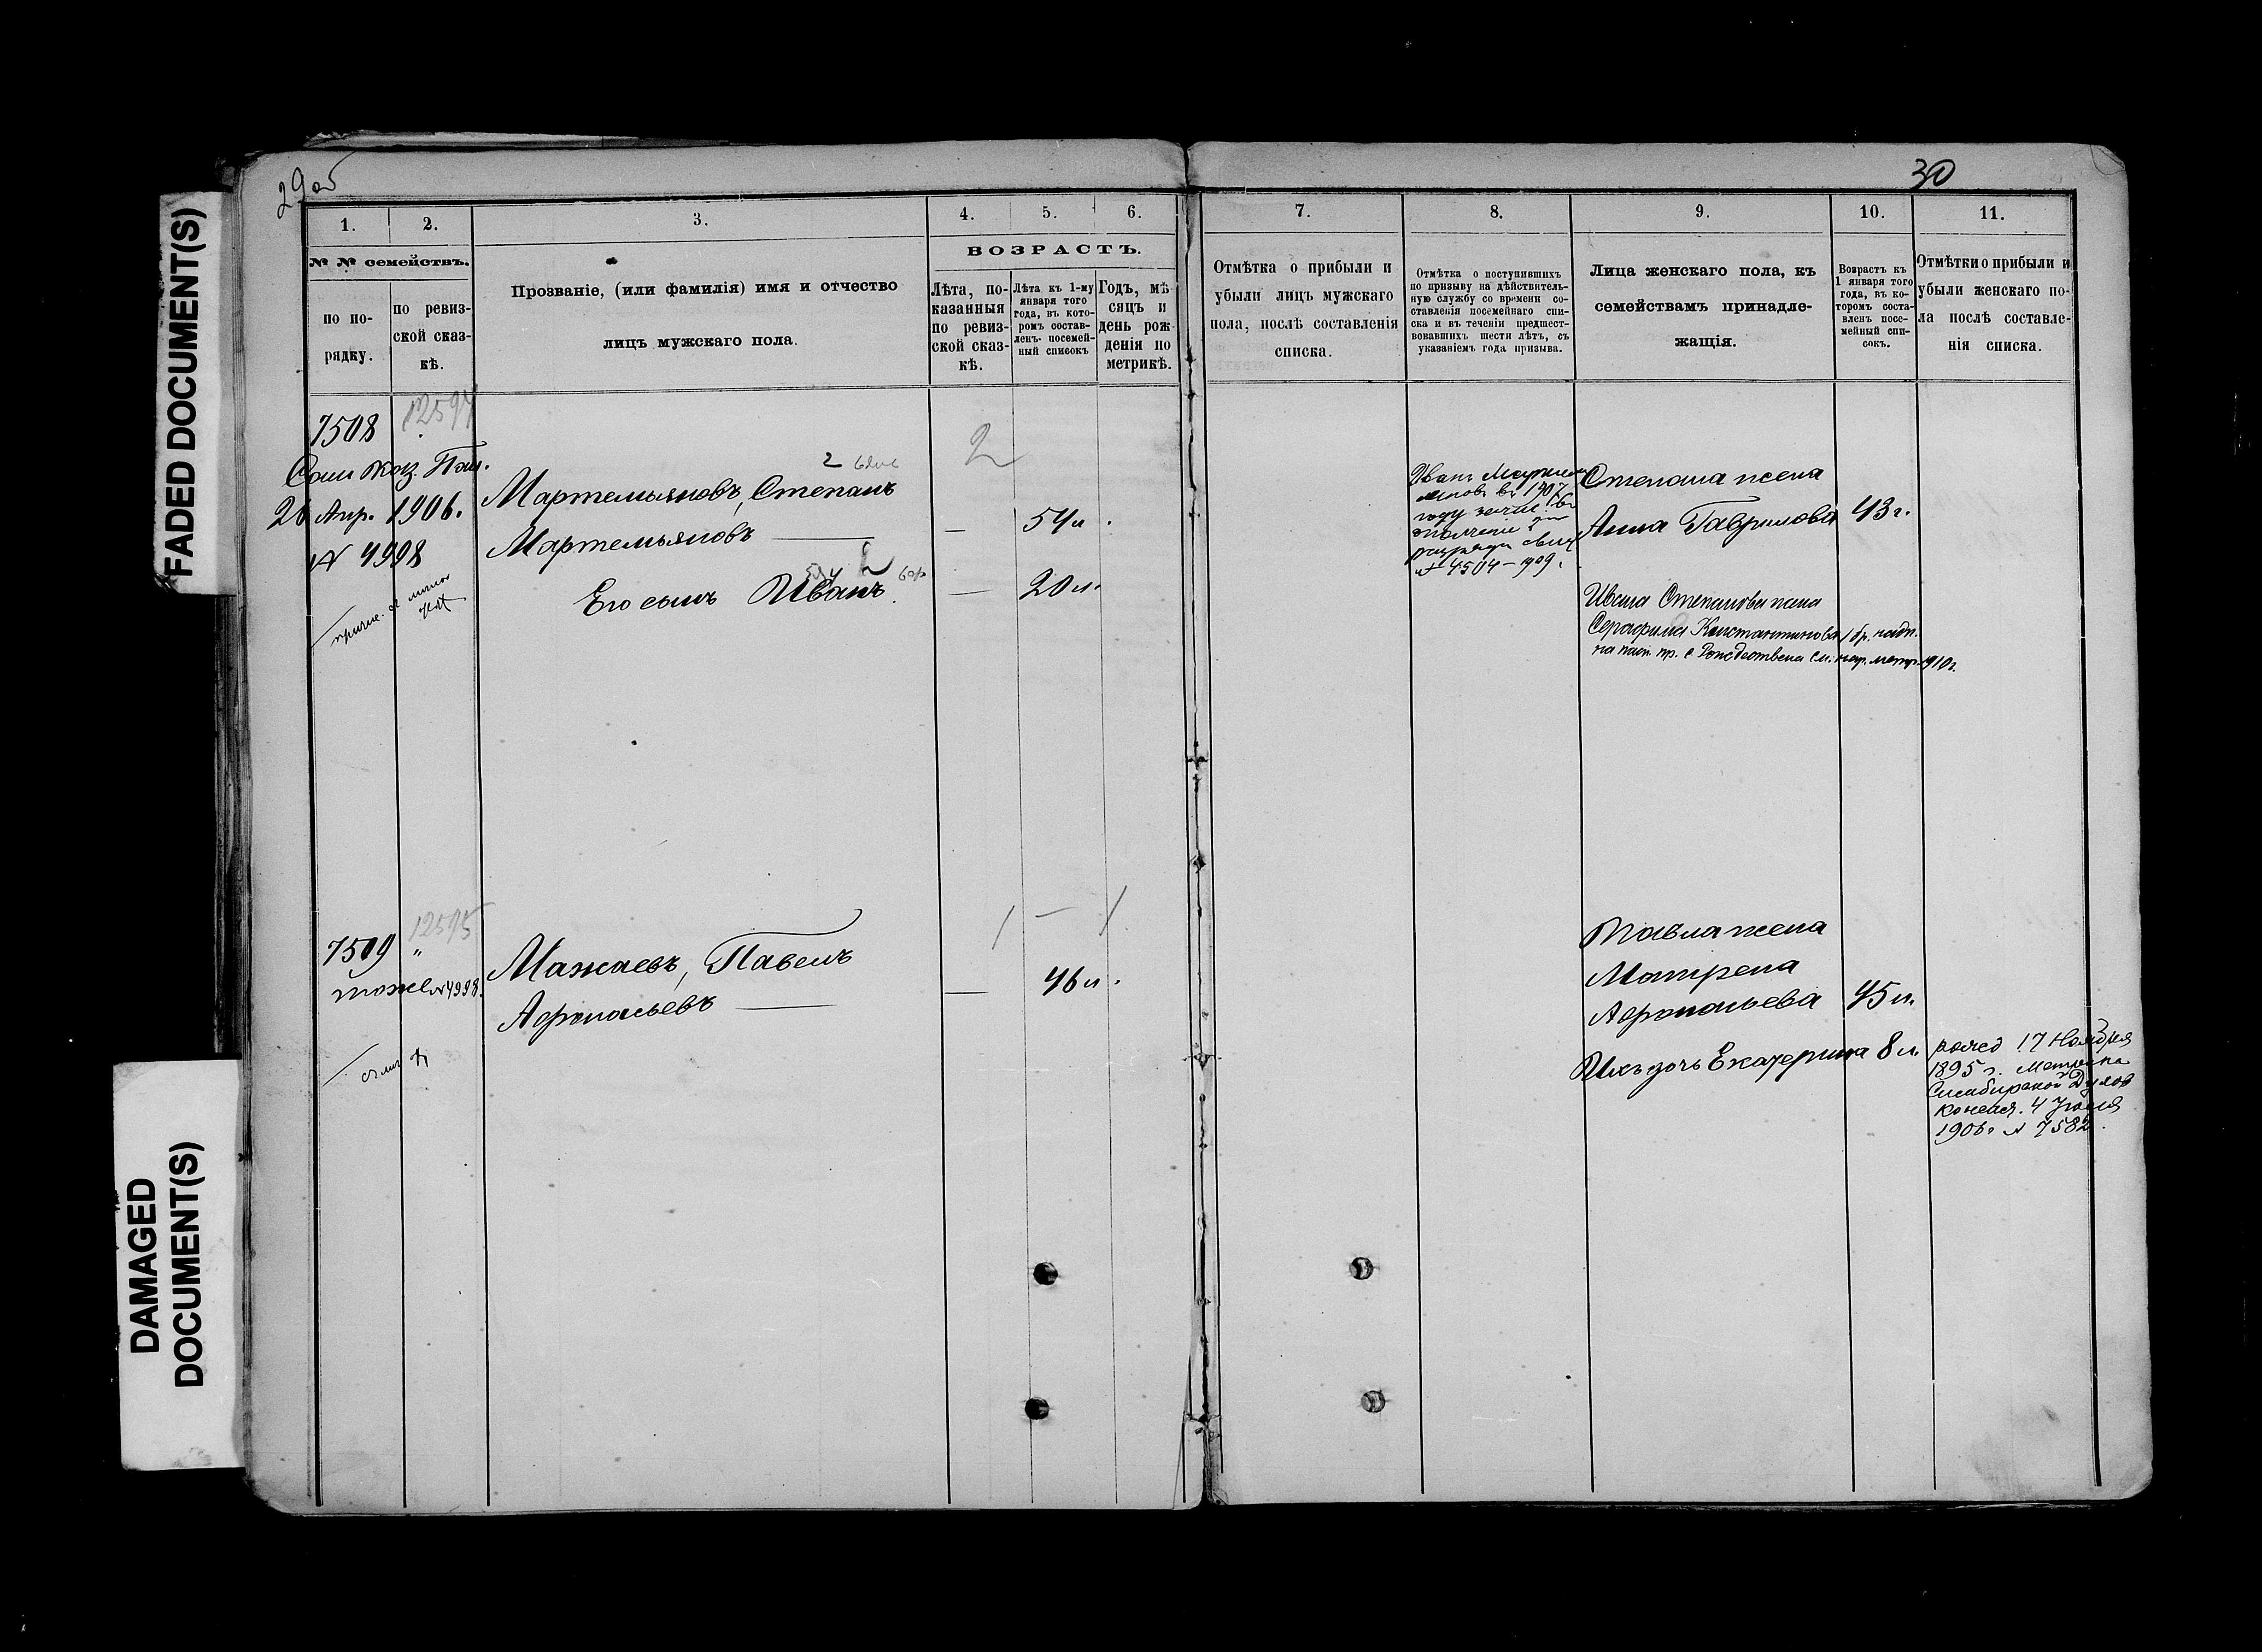 FADED DOCUMENT(S)
DAMAGED
DOCUMENT(S)
29об
30
1.
2.
3.
4.
5.
6.
№ № семействъ.
по по-
рядку.
по ревиз-
ской сказ-
кѣ.
Прозваніе, (или фамилія) имя и отчество
лицъ мужскаго пола.
ВОЗРАСТЪ.
Лѣта, по-
казанныя
по ревиз-
ской сказ-
кѣ.
Лѣта къ 1-му
января того
года, въ кото-
ромъ состав-
ленъ посемей-
ный списокъ
Годъ, мѣ-
сяцъ и
день рож-
денія по
метрикѣ.
7.
8.
9.
10.
11.
Отмѣтка о прибыли и
убыли лицъ мужскаго
пола, послѣ составленія
списка.
Отмѣтка о поступившихъ
по призыву на дѣйствитель-
ную службу со времени со-
ставленія посемейнаго спи-
ска и въ теченіи предшест-
вовавшихъ шести лѣтъ, съ
указаніемъ года призыва.
Лица женскаго пола, къ
семействамъ принадле-
жащія.
Возрастъ къ
1 января того
года, въ ко-
торомъ соста-
вленъ посе-
мейный спи-
сокъ.
Отмѣтки о прибыли и
убыли женскаго по-
ла послѣ составле-
нія списка.
7508
Каз. Пал.
26 Апр. 1906.
№ 4998
2
2
Мартемьяновъ, Степанъ
Мартемьяновъ — 54 л.
Его сынъ Иванъ — 20 л.
Иванъ Мартемь
яновъ въ 1907
году зачис. въ
ополченіе 2
разряда свид
№ 4504 – 1909.
Степана жена
Анна Гаврилова 43 г.
Ивана Степанова жена
Серафима Константинова 1 бр.
на пасп. пр. с Рождествена см. нар. метр. 1910 г.
7509
12595
"
тоже № 4998.
1 — 1
Мажаевъ, Павелъ
Афонасьевъ — 46 л.
Павла жена
Матрена
Афонасьева 45 л.
Ихъ дочь Екатерина 8 л.
рожд 17 Ноября
1895 г. Метрика
Симбирской Духов
Консист. 4 Іюля
1906 г № 7582.